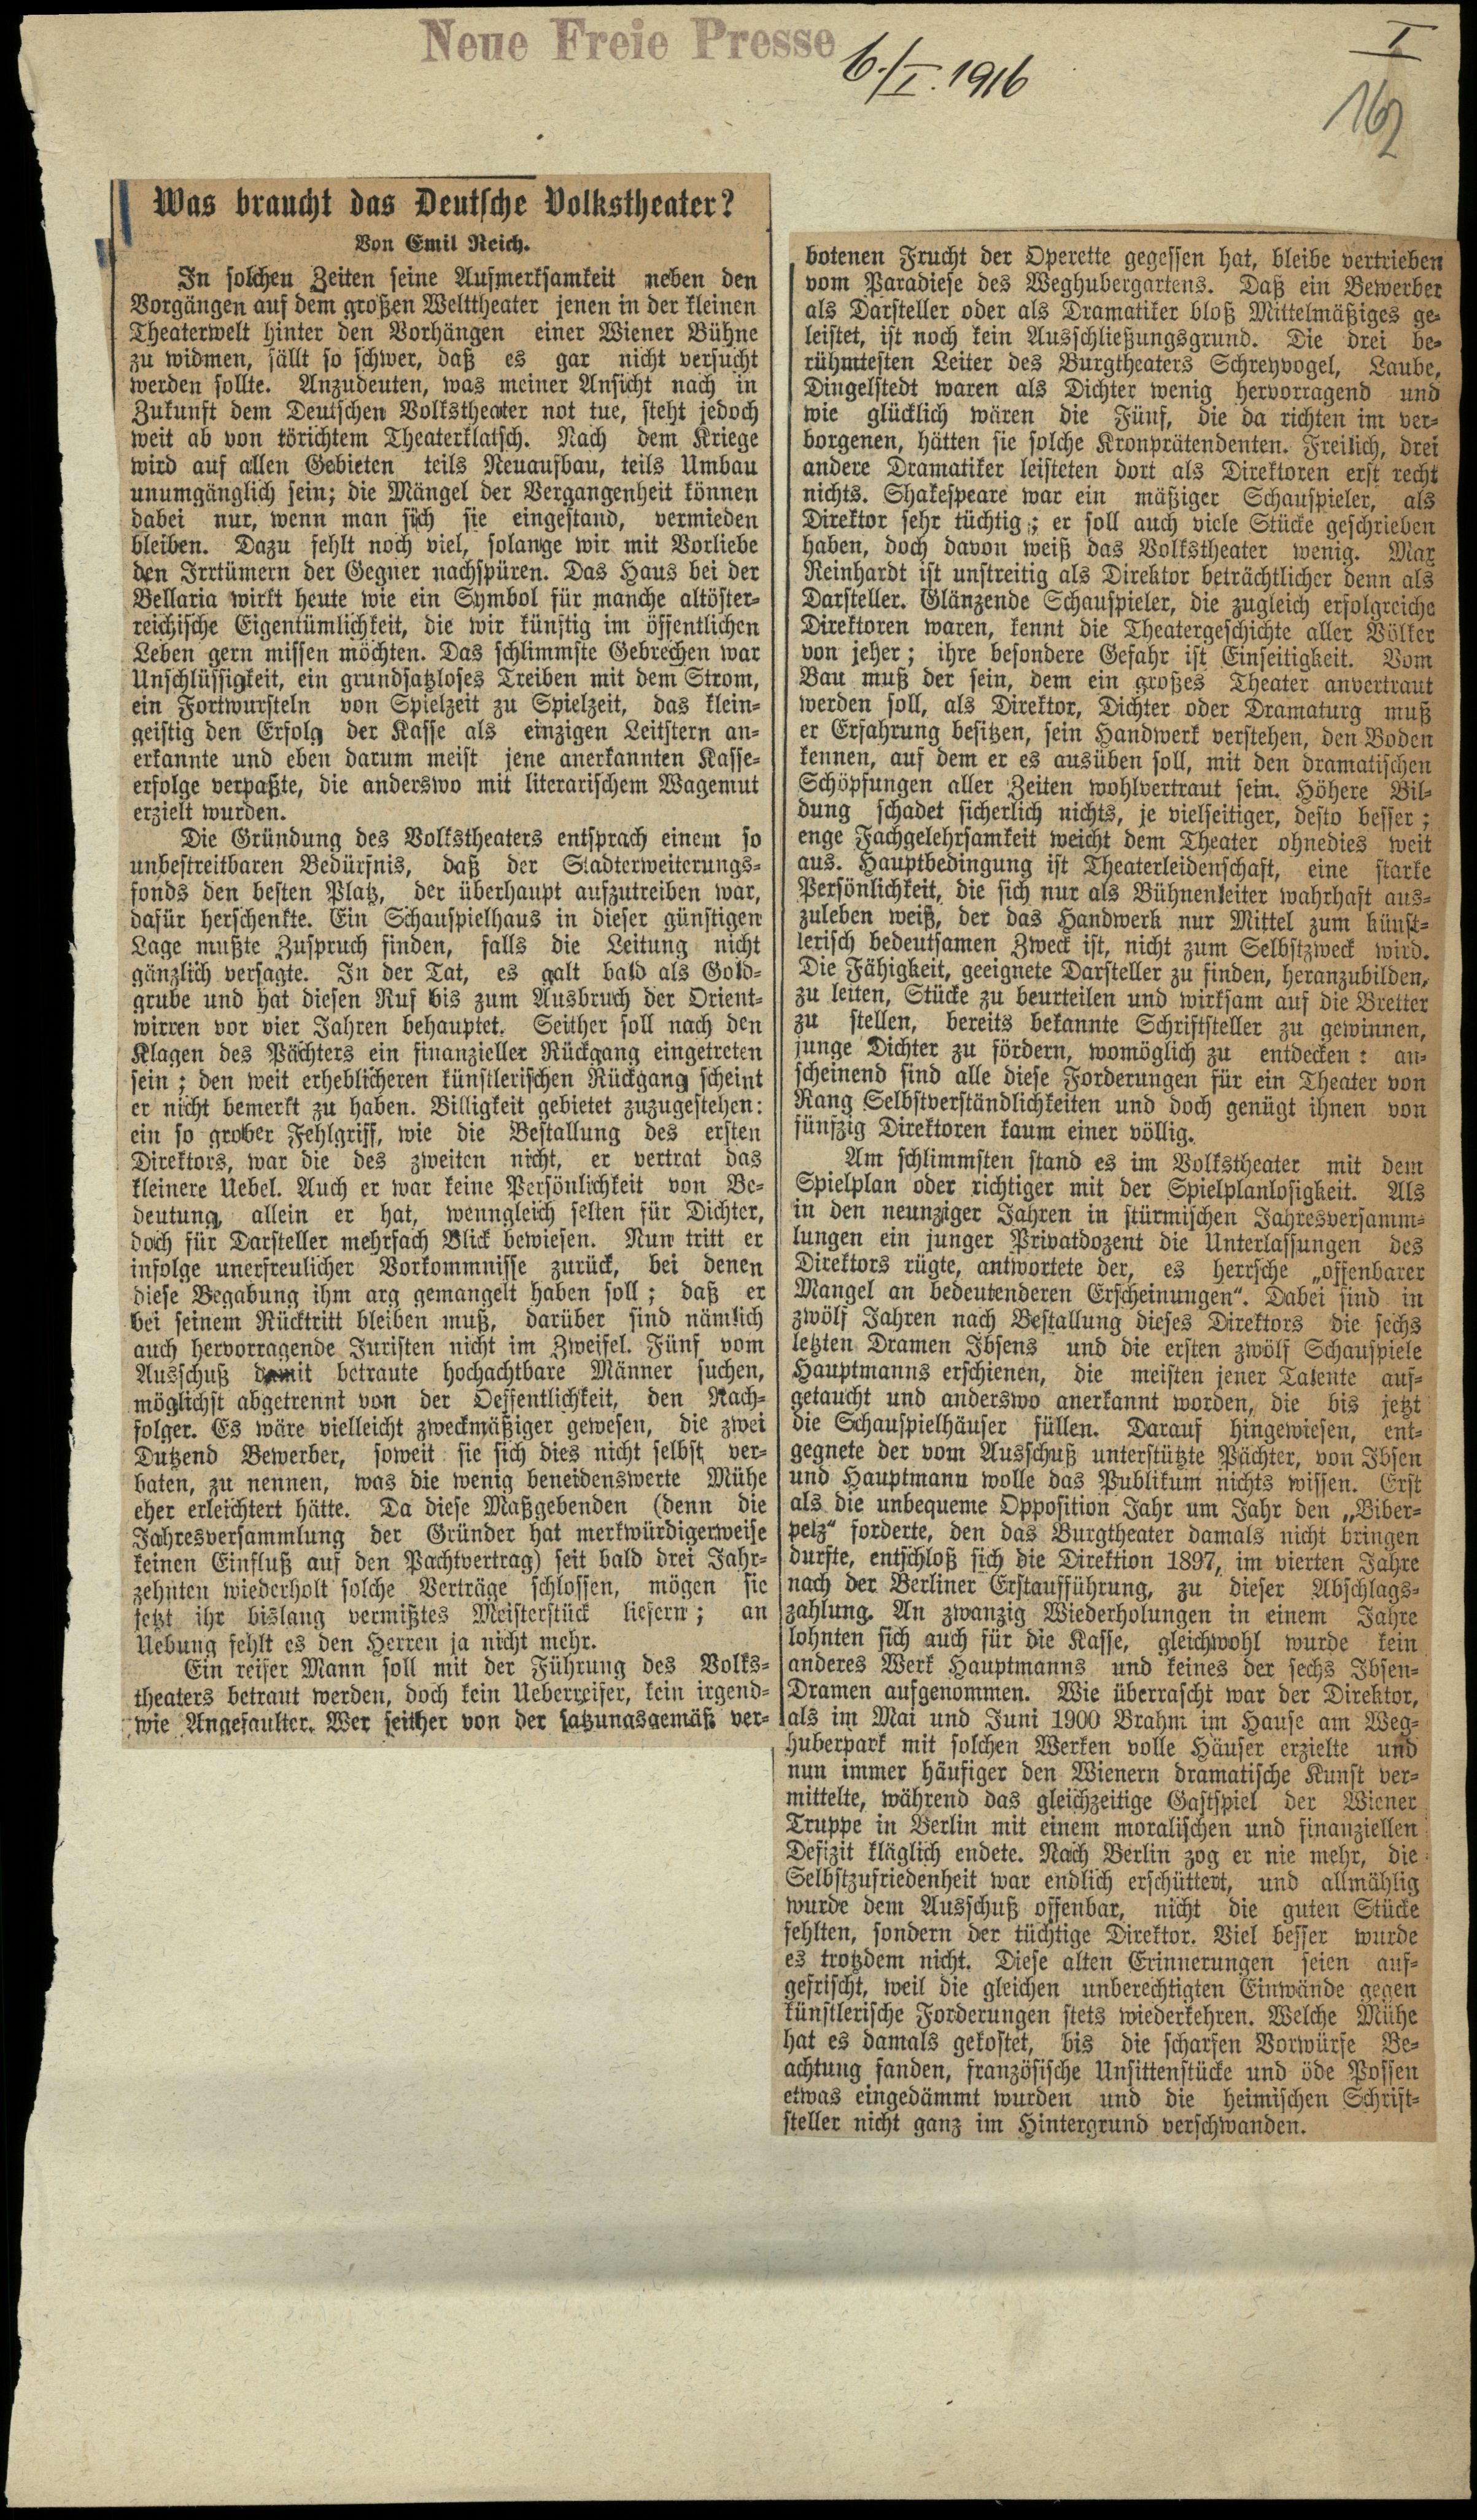 Neue Freie Presse
6./I. 1916
I
162
Was braucht das Deutsche Volkstheater?
Von Emil Reich.
In solchen Zeiten seine Aufmerksamkeit neben den
Vorgängen auf dem großen Welttheater jenen in der kleinen
Theaterwelt hinter den Vorhängen einer Wiener Bühne
zu widmen, fällt so schwer, daß es gar nicht versucht
werden sollte. Anzudeuten, was meiner Ansicht nach in
Zukunft dem Deutschen Volkstheater not tue, steht jedoch
weit ab von törichtem Theaterklatsch. Nach dem Kriege
wird auf allen Gebieten teils Neuaufbau, teils Umbau
unumgänglich sein; die Mängel der Vergangenheit können
dabei nur, wenn man sich sie eingestand, vermieden
bleiben. Dazu fehlt noch viel, solange wir mit Vorliebe
den Irrtümern der Gegner nachspüren. Das Haus bei der
Bellaria wirkt heute wie ein Symbol für manche altöster-
reichische Eigentümlichkeit, die wir künftig im öffentlichen
Leben gern missen möchten. Das schlimmste Gebrechen war
Unschlüssigkeit, ein grundsatzloses Treiben mit dem Strom,
ein Fortwursteln von Spielzeit zu Spielzeit, das klein-
geistig den Erfolg der Kasse als einzigen Leitstern an-
erkannte und eben darum meist jene anerkannten Kasse-
erfolge verpaßte, die anderswo mit literarischem Wagemut
erzielt wurden.
Die Gründung des Volkstheaters entsprach einem so
unbestreitbaren Bedürfnis, daß der Stadterweiterungs-
fonds den besten Platz, der überhaupt aufzutreiben war,
dafür herschenkte. Ein Schauspielhaus in dieser günstigen
Lage mußte Zuspruch finden, falls die Leitung nicht
gänzlich versagte. In der Tat, es galt bald als Gold-
grube und hat diesen Ruf bis zum Ausbruch der Orient-
wirren vor vier Jahren behauptet. Seither soll nach den
Klagen des Pächters ein finanzieller Rückgang eingetreten
sein; den weit erheblicheren künstlerischen Rückgang scheint
er nicht bemerkt zu haben. Billigkeit gebietet zuzugestehen:
ein so grober Fehlgriff, wie die Bestallung des ersten
Direktors, war die des zweiten nicht, er vertrat das
kleinere Uebel. Auch er war keine Persönlichkeit von Be-
deutung, allein er hat, wenngleich selten für Dichter,
doch für Darsteller mehrfach Blick bewiesen. Nun tritt er
infolge unerfreulicher Vorkommnisse zurück, bei denen
diese Begabung ihm arg gemangelt haben soll; daß er
bei seinem Rücktritt bleiben muß, darüber sind nämlich
auch hervorragende Juristen nicht im Zweifel. Fünf vom
Ausschuß damit betraute hochachtbare Männer suchen,
möglichst abgetrennt von der Oeffentlichkeit, den Nach-
folger. Es wäre vielleicht zweckmäßiger gewesen, die zwei
Dutzend Bewerber, soweit sie sich dies nicht selbst ver-
baten, zu nennen, was die wenig beneidenswerte Mühe
eher erleichtert hätte. Da diese Maßgebenden (denn die
Jahresversammlung der Gründer hat merkwürdigerweise
keinen Einfluß auf den Pachtvertrag) seit bald drei Jahr-
zehnten wiederholt solche Verträge schlossen, mögen sie
jetzt ihr bislang vermißtes Meisterstück liefern; an
Uebung fehlt es den Herren ja nicht mehr.
Ein reifer Mann soll mit der Führung des Volks-
theaters betraut werden, doch kein Ueberreifer, kein irgend-
wie Angefaulter. Wer seither von der satzungsgemäß ver-
botenen Frucht der Operette gegessen hat, bleibe vertrieben
vom Paradiese des Weghubergartens. Daß ein Bewerber
als Darsteller oder als Dramatiker bloß Mittelmäßiges ge-
leistet, ist noch kein Ausschließungsgrund. Die drei be-
rühmtesten Leiter des Burgtheaters Schreyvogel, Laube,
Dingelstedt waren als Dichter wenig hervorragend und
wie glücklich wären die Fünf, die da richten im ver-
borgenen, hätten sie solche Kronprätendenten. Freilich, drei
andere Dramatiker leisteten dort als Direktoren erst recht
nichts. Shakespeare war ein mäßiger Schauspieler, als
Direktor sehr tüchtig; er soll auch viele Stücke geschrieben
haben, doch davon weiß das Volkstheater wenig. Max
Reinhardt ist unstreitig als Direktor beträchtlicher denn als
Darsteller. Glänzende Schauspieler, die zugleich erfolgreiche
Direktoren waren, kennt die Theatergeschichte aller Völker
von jeher; ihre besondere Gefahr ist Einseitigkeit. Vom
Bau muß der sein, dem ein großes Theater anvertraut
werden soll, als Direktor, Dichter oder Dramaturg muß
er Erfahrung besitzen, sein Handwerk verstehen, den Boden
kennen, auf dem er es ausüben soll, mit den dramatischen
Schöpfungen aller Zeiten wohlvertraut sein. Höhere Bil-
dung schadet sicherlich nichts, je vielseitiger, desto besser;
enge Fachgelehrsamkeit weicht dem Theater ohnedies weit
aus. Hauptbedingung ist Theaterleidenschaft, eine starke
Persönlichkeit, die sich nur als Bühnenleiter wahrhaft aus-
zuleben weiß, der das Handwerk nur Mittel zum künst-
lerisch bedeutsamen Zweck ist, nicht zum Selbstzweck wird.
Die Fähigkeit, geeignete Darsteller zu finden, heranzubilden,
zu leiten, Stücke zu beurteilen und wirksam auf die Bretter
zu stellen, bereits bekannte Schriftsteller zu gewinnen,
junge Dichter zu fördern, womöglich zu entdecken: an-
scheinend sind alle diese Forderungen für ein Theater von
Rang Selbstverständlichkeiten und doch genügt ihnen von
fünfzig Direktoren kaum einer völlig.
Am schlimmsten stand es im Volkstheater mit dem
Spielplan oder richtiger mit der Spielplanlosigkeit. Als
in den neunziger Jahren in stürmischen Jahresversamm-
lungen ein junger Privatdozent die Unterlassungen des
Direktors rügte, antwortete der, es herrsche „offenbarer
Mangel an bedeutenderen Erscheinungen“. Dabei sind in
zwölf Jahren nach Bestallung dieses Direktors die sechs
letzten Dramen Ibsens und die ersten zwölf Schauspiele
Hauptmanns erschienen, die meisten jener Talente auf-
getaucht und anderswo anerkannt worden, die bis jetzt
die Schauspielhäuser füllen. Darauf hingewiesen, ent-
gegnete der vom Ausschuß unterstützte Pächter, von Ibsen
und Hauptmann wolle das Publikum nichts wissen. Erst
als die unbequeme Opposition Jahr um Jahr den „Biber-
pelz“ forderte, den das Burgtheater damals nicht bringen
durfte, entschloß sich die Direktion 1897, im vierten Jahre
nach der Berliner Erstaufführung, zu dieser Abschlags-
zahlung. An zwanzig Wiederholungen in einem Jahre
lohnten sich auch für die Kasse, gleichwohl wurde kein
anderes Werk Hauptmanns und keines der sechs Ibsen-
Dramen aufgenommen. Wie überrascht war der Direktor,
als im Mai und Juni 1900 Brahm im Hause am Weg-
huberpark mit solchen Werken volle Häuser erzielte und
nun immer häufiger den Wienern dramatische Kunst ver-
mittelte, während das gleichzeitige Gastspiel der Wiener
Truppe in Berlin mit einem moralischen und finanziellen
Defizit kläglich endete. Nach Berlin zog er nie mehr, die
Selbstzufriedenheit war endlich erschüttert, und allmählig
wurde dem Ausschuß offenbar, nicht die guten Stücke
fehlten, sondern der tüchtige Direktor. Viel besser wurde
es trotzdem nicht. Diese alten Erinnerungen seien auf-
gefrischt, weil die gleichen unberechtigten Einwände gegen
künstlerische Forderungen stets wiederkehren. Welche Mühe
hat es damals gekostet, bis die scharfen Vorwürfe Be-
achtung fanden, französische Unsittenstücke und öde Possen
etwas eingedämmt wurden und die heimischen Schrift-
steller nicht ganz im Hintergrund verschwanden.